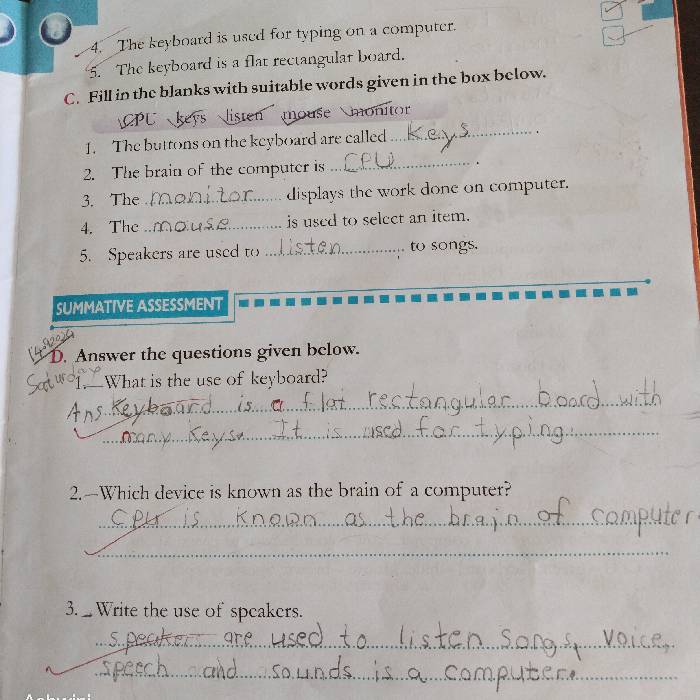 4. The keyboard is used for typing on a computer.
5. The keyboard is a flat rectangular board.
C. Fill in the blanks with suitable words given in the box below.
CPU keys listen mouse monitor
1. The buttons on the keyboard are called ... keys .............. .
2. The brain of the computer is ... CPU .............. .
3. The . monitor ...... displays the work done on computer.
4. The .. mouse .......... is used to select an item.
5. Speakers are used to ... listen .............. to songs.
SUMMATIVE ASSESSMENT
D. Answer the questions given below.
Saturday
1. What is the use of keyboard?
Ans. Keyboard is a flat rectangular board with
many keys. It is used for typing.
2. Which device is known as the brain of a computer?
CPU is known as the brain of computer.
3. Write the use of speakers.
speakers are used to listen songs, voice,
speech and sounds is a computer.